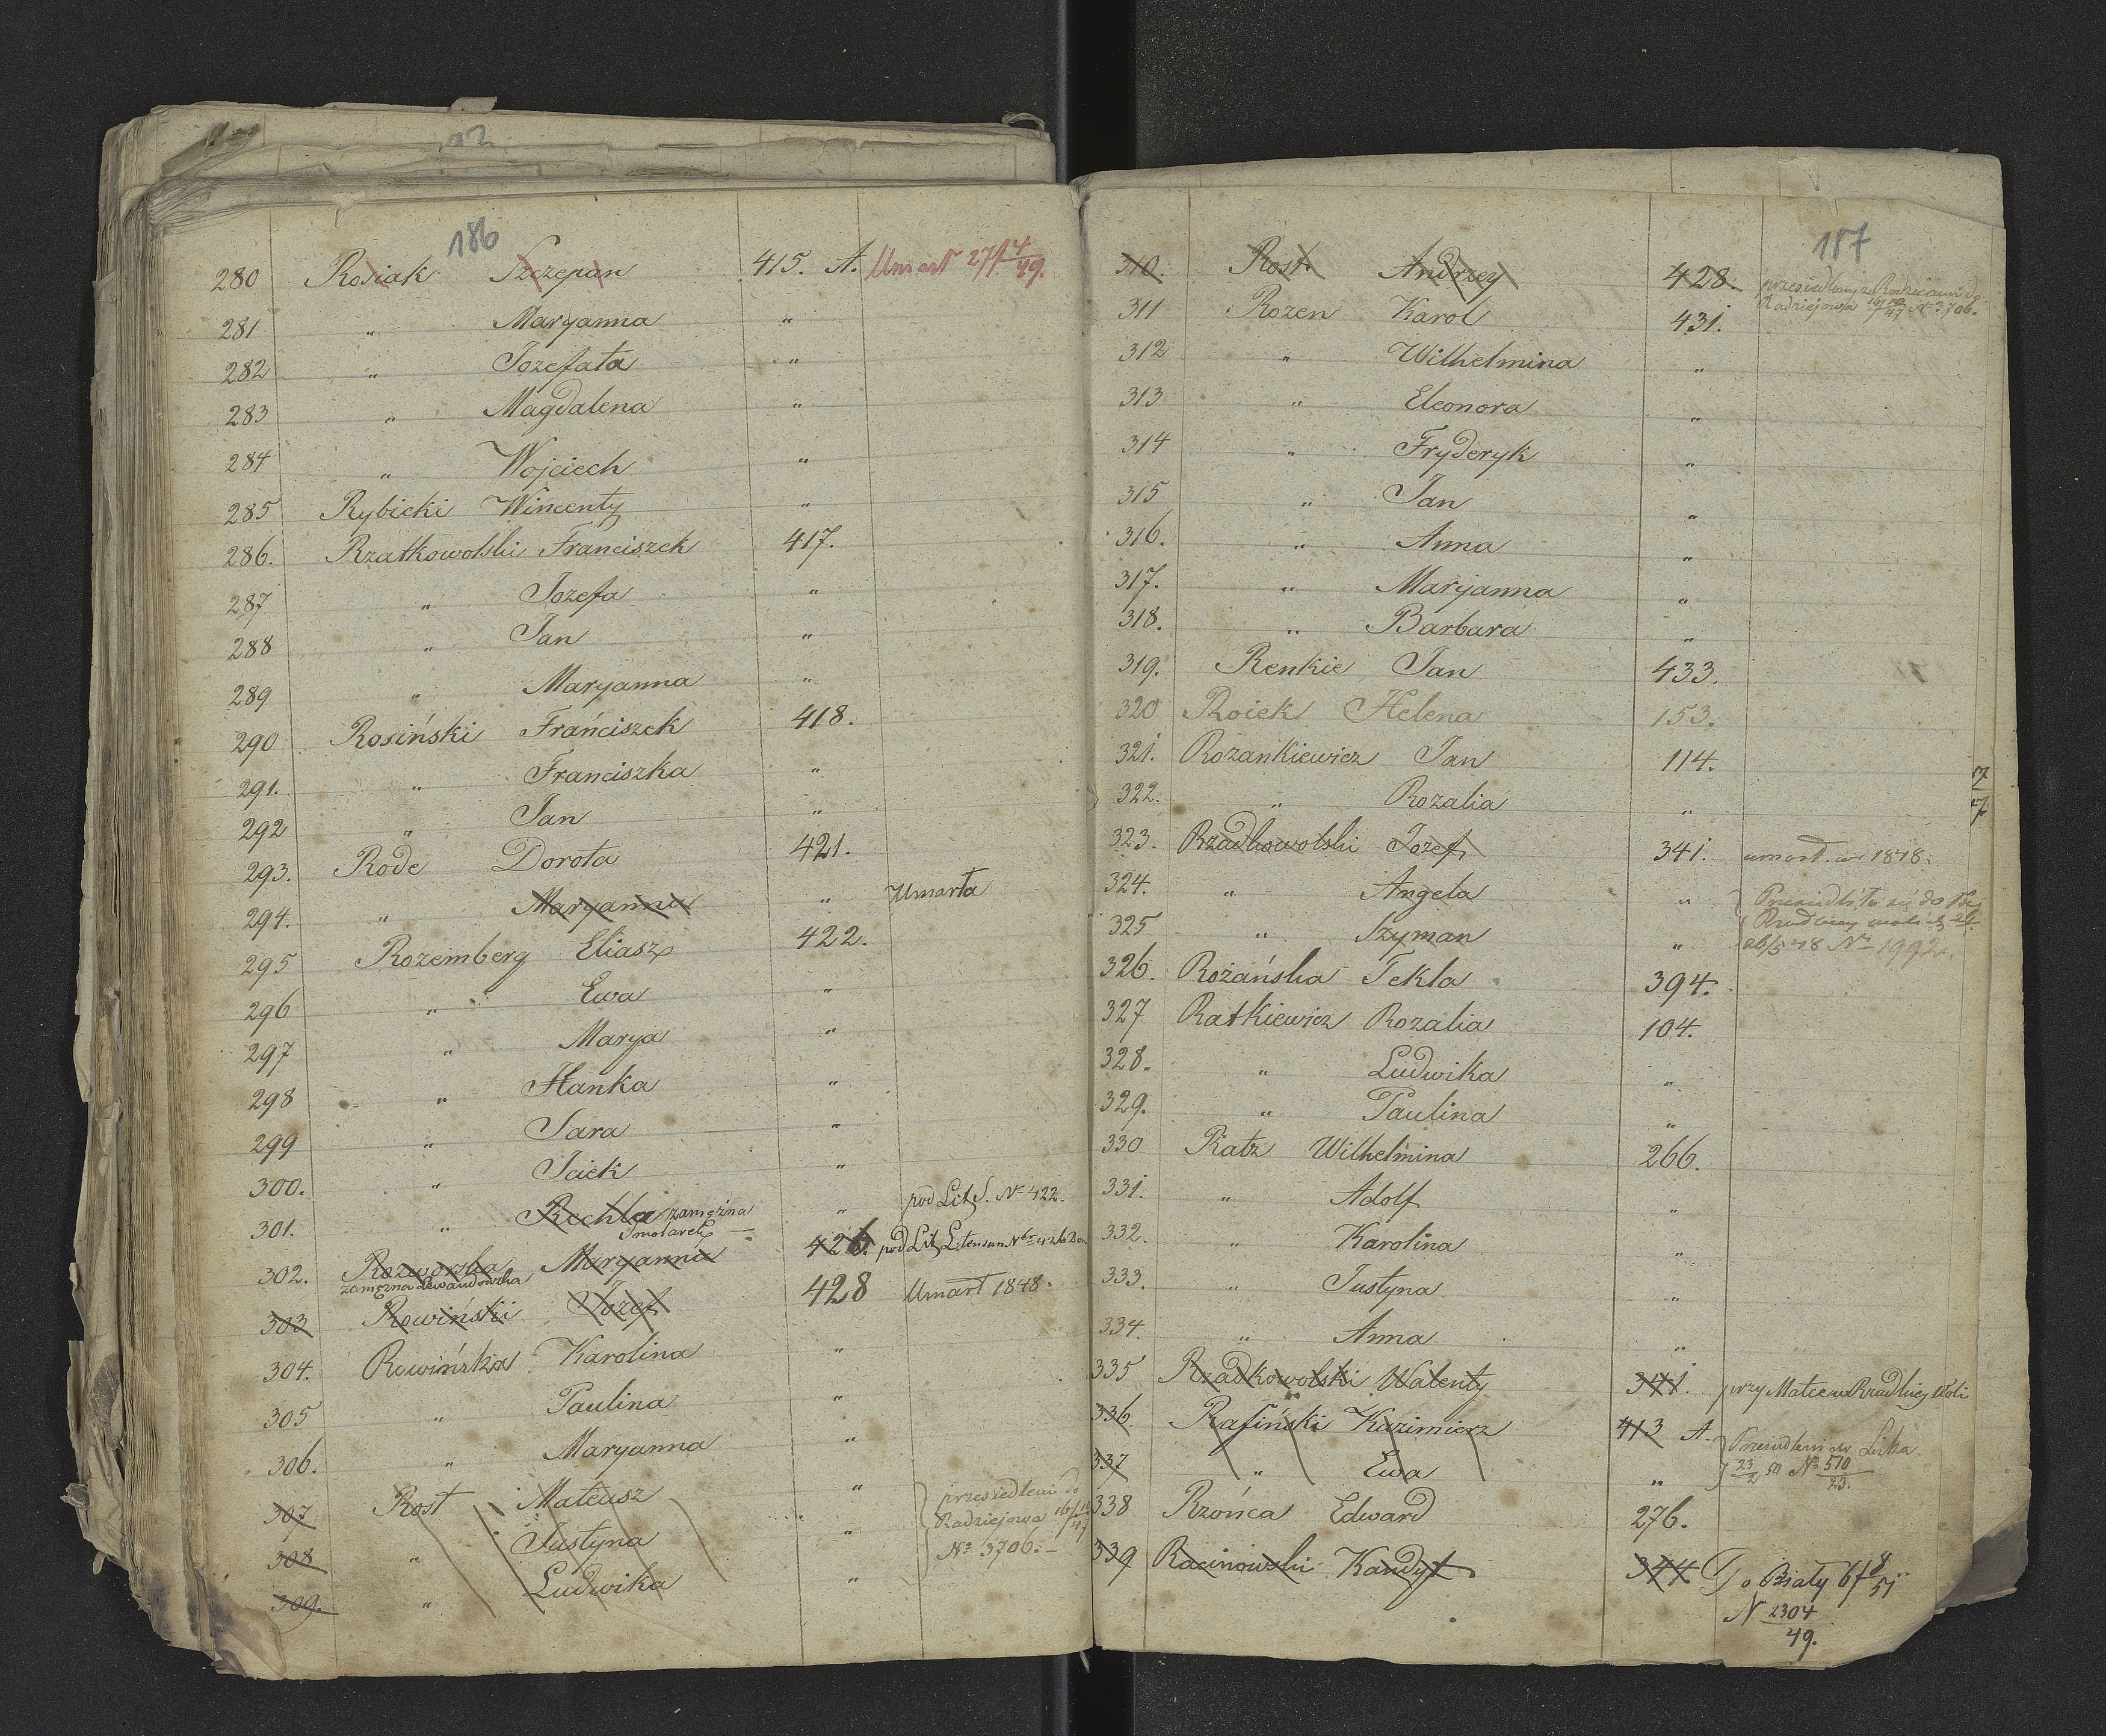 186
280 Rosiak Szczepan 415. A. Umarł 27/4 49.
281 „ Maryanna „
282 „ Jozefata „
283 „ Magdalena „
284 „ Wojciech „
285 Rybicki Wincenty „
286. Rzatkowolski Franciszek 417.
287 „ Jozefa „
288 „ Jan „
289 „ Maryanna „
290 Rosiński Franciszek 418.
291. „ Franciszka „
292 „ Jan „
293. Rode Dorota 421.
294. „ Maryanna „ Umarła
295 Rozemberg Eliasz 422.
296 „ Ewa „
297 „ Marya „
298 „ Hanka „
299 „ Sara „
300. „ Iciek „
301. „ Rechla zamężna „ pod Lit S. No 422.
Smolarek
302. Rozworska Maryanna 426. pod Lit L
zamężna Lewandowska
303 Rowiński Jozef 428 Umarł 1848.
304. Rowińska Karolina „
305 „ Paulina „
306. „ Maryanna „
307 Rost Mateusz „ przesiedleni do
308 „ Justyna „ Radziejowa 16/10 47
309. „ Ludwika „ No 3706.
187
310. Rost Andrzey 428. przesiedlony z Rodzicami do
Radziejowa 16/10 47 No 3706.
311 Rozen Karol 431.
312 „ Wilhelmina „
313 „ Eleonora „
314 „ Fryderyk „
315 „ Jan „
316. „ Anna „
317. „ Maryanna „
318. „ Barbara „
319. Renkie Jan 433.
320 Roiek Helena 153.
321. Rozankiewicz Jan 114.
322. „ Rozalia „
323. Rzadkowolski Jozef 341. umarł w 1848.
324. „ Angela „ do
325 „ Szyman „ 26/5 48 No 1992.
326. Rożańska Tekla 394.
327 Ratkiewicz Rozalia 104.
328. „ Ludwika „
329. „ Paulina „
330 Ratz Wilhelmina 266.
331. „ Adolf „
332. „ Karolina „
333. „ Justyna „
334. „ Anna „
335 Rzadkowolski Walenty 341. przy Matce w Rzadkiej Woli
336. Rafiński Kazimierz 413 A. Przesiedleni do
337 „ Ewa „ 23/2 50 No 510/23.
338 Rzońca Edward 276.
339 Racinowski Kandyt 344 Do Biały 6/8 51
N 2304
49.